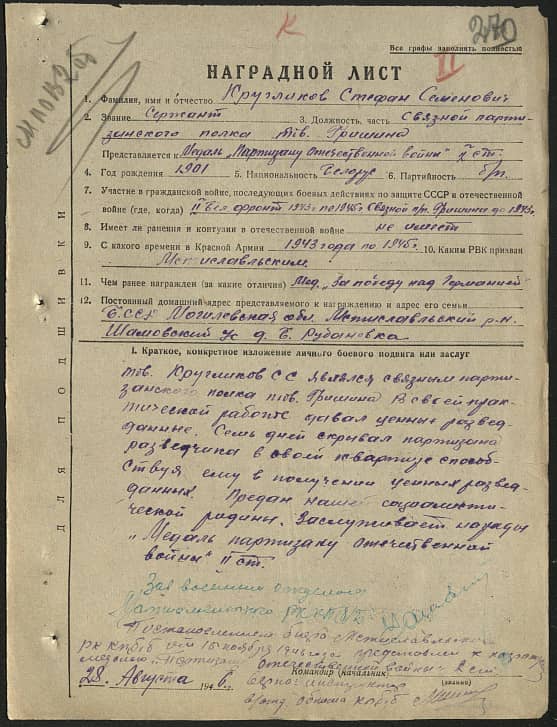 К
270
Все графы заполнять полностью
II
НАГРАДНОЙ ЛИСТ
1. Фамилия, имя и отчество Кругликов Стефан Семенович
2. Звание Сержант 3. Должность, часть Связной парти-
занского полка тов. Гришина
Представляется к Медаль "Партизану Отечественной войны" II ст.
4. Год рождения 1901 5. Национальность Белорус 6. Партийность б/п.
7. Участие в гражданской войне, последующих боевых действиях по защите СССР и отечественной
войне (где, когда) II Бел фронт 1943г по 1945г. Связной п/п. Гришина до 1943г.
8. Имеет ли ранения и контузии в отечественной войне не имеет
9. С какого времени в Красной Армии 1943 года по 1945г. 10. Каким РВК призван
Мстиславльским
11. Чем ранее награжден (за какие отличия) Мед. "За победу над Германией"
12. Постоянный домашний адрес представляемого к награждению и адрес его семьи
БССР Могилевская обл. Мстиславльский р-н.
Шамовский с/с д. Б. Рубановка
I. Краткое, конкретное изложение личного боевого подвига или заслуг
тов. Кругликов С С являлся связным парти-
занского полка тов. Гришина В своей прак-
тической работе давал ценные развед-
данные. Семь дней скрывал партизана
разведчика в своей квартире способ-
ствуя ему в получении ценных развед-
данных. Предан нашей социалисти-
ческой родины. Заслуживает награды
"Медаль партизану отечественной
войны" II ст.
Зав военным отделом
Мстиславльского РК КП/б/Б
Постановлением бюро Мстиславльского
РК КП/б/Б от 15 ноября 1946 года представлен к награде
медалью "Партизану отечественной войны" 2 ст
Командир (начальник)
(звание)
28. Августа 1946 г.
обкома КП/б/Б
ДЛЯ ПОДШИВКИ